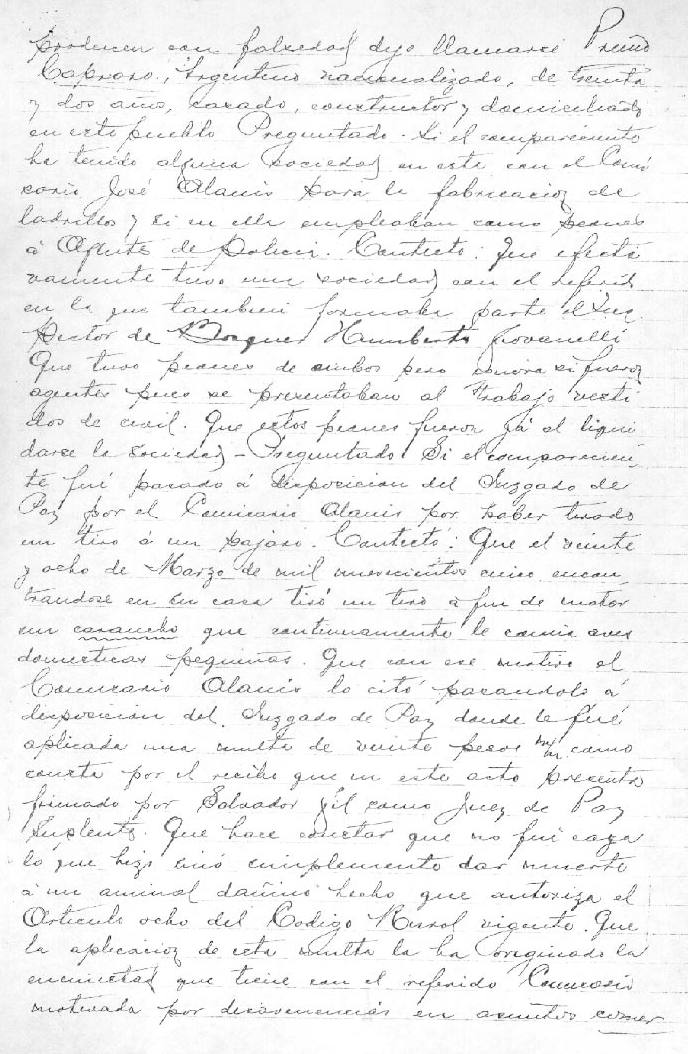 producen con falsedad dijo llamarse Primo
Capraro, Argentino nacionalizado, de treinta
y dos años, casado, constructor y domiciliado
en este pueblo Preguntado. Si el compareciente
ha tenido alguna sociedad en esta con el Comi
sario José Alanis para la fabricacion de
ladrillos y si en ella empleaban como peones
á Agentes de Policia. Contestó: Que efecti
vamente tuvo una sociedad con el referido
en la que tambien formaba parte el Ins
pector de Bosques Humberto Giovanelli
Que tuvo peones de ambos pero ignora si fueron
agentes pues se presentaban al trabajo vesti
dos de civil. Que estos peones fueron ya al liqui
darse la Sociedad – Preguntado Si el comparecien
te fué pasado á disposicion del Juzgado de
Paz por el Comisario Alanis por haber tirado
un tiro á un pajaro. Contestó: Que el veinte
y ocho de Marzo de mil novecientos once encon
trandose en su casa tiró un tiro a fin de matar
un carancho que continuamente le comia aves
domesticas pequeñas. Que con ese motivo el
Comisario Alanis lo citó pasandolo á
disposicion del Juzgado de Paz donde le fué
aplicada una multa de veinte pesos m/n como
consta por el recibo que en este acto presenta
firmado por Salvador Gil como Juez de Paz
Suplente. Que hace constar que no fué caza
lo que hizo sinó simplemente dar muerte
á un animal dañino hecho que autoriza el
Articulo ocho del Codigo Rural vigente. Que
la aplicacion de esta multa la ha originado la
enemistad que tiene con el referido Comisario
motivada por desavenencias en asuntos comer